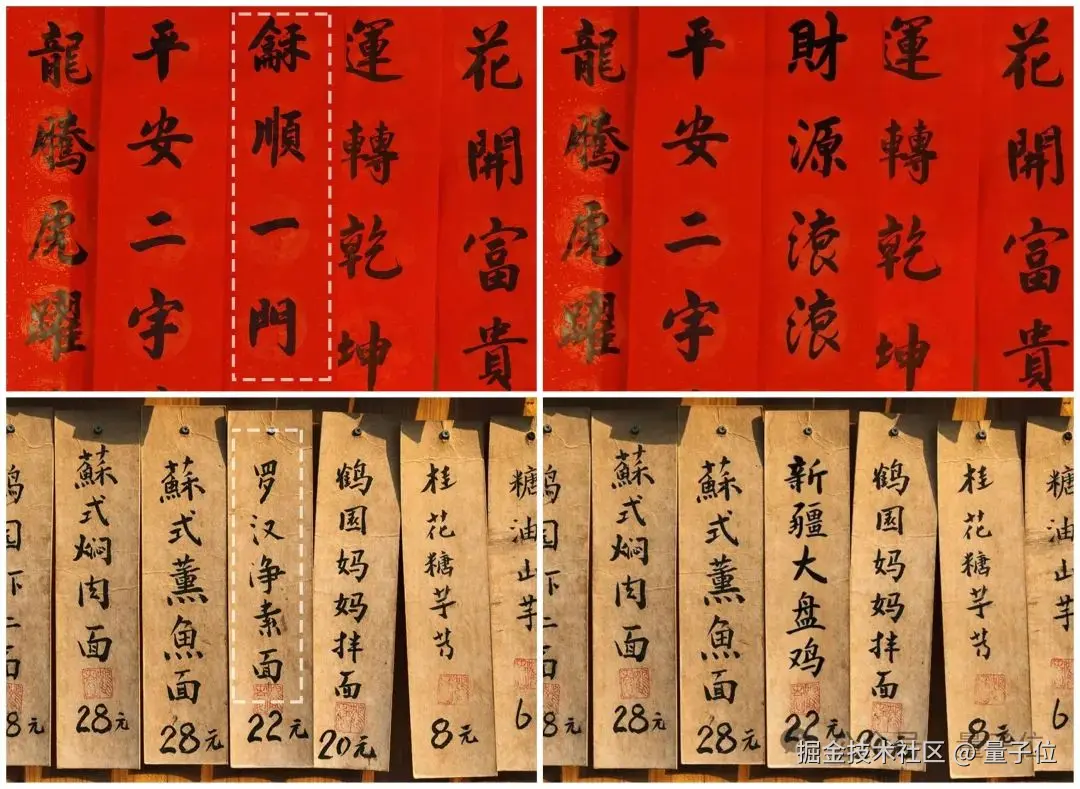 龍騰虎躍
平安二字
龢順一門
運轉乾坤
花開富貴
龍騰虎躍
平安二字
財源滾滾
運轉乾坤
花開富貴
8元
蘇式焖肉面
28元
蘇式薰魚面
28元
罗汉净素面
22元
鹤园妈妈拌面
20元
桂花糖芋艿
8元
糖油山芋
6
8元
蘇式焖肉面
28元
蘇式薰魚面
28元
新疆大盘鸡
22元
鹤园妈妈拌面
桂花糖芋艿
8元
糖油山芋
6
掘金技术社区 @ 量子位